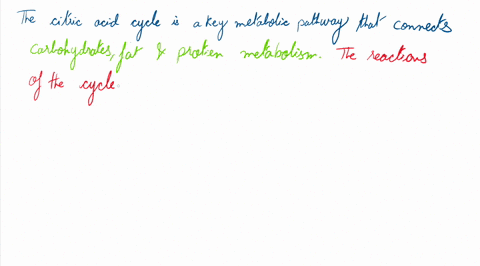 The citric acid cycle is a key metabolic pathway that connects
carbohydrates, fat & protien metabolism. The reactions
of the cycle